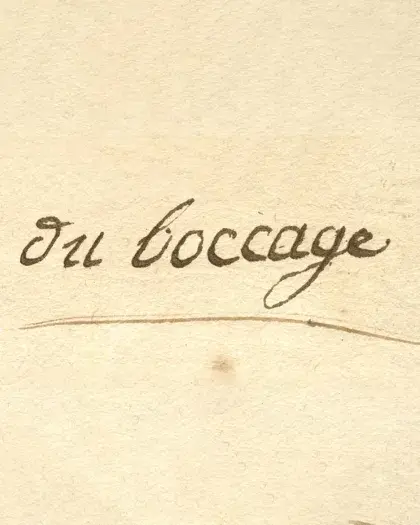 du boccage